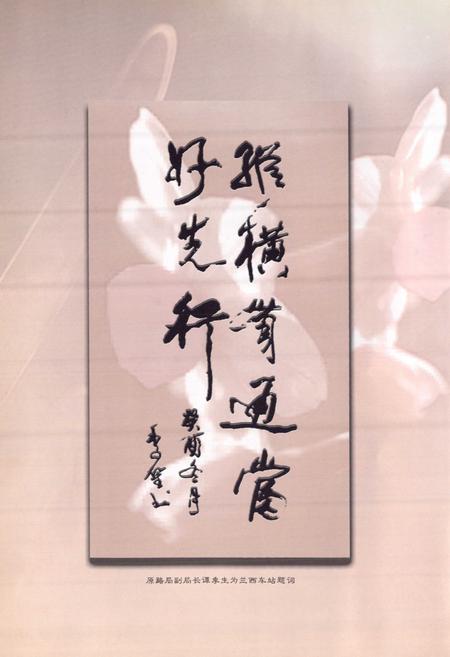 纵横贯通當
好先行
癸酉冬月
季生书
原路局副局长谭季生为兰西车站题词